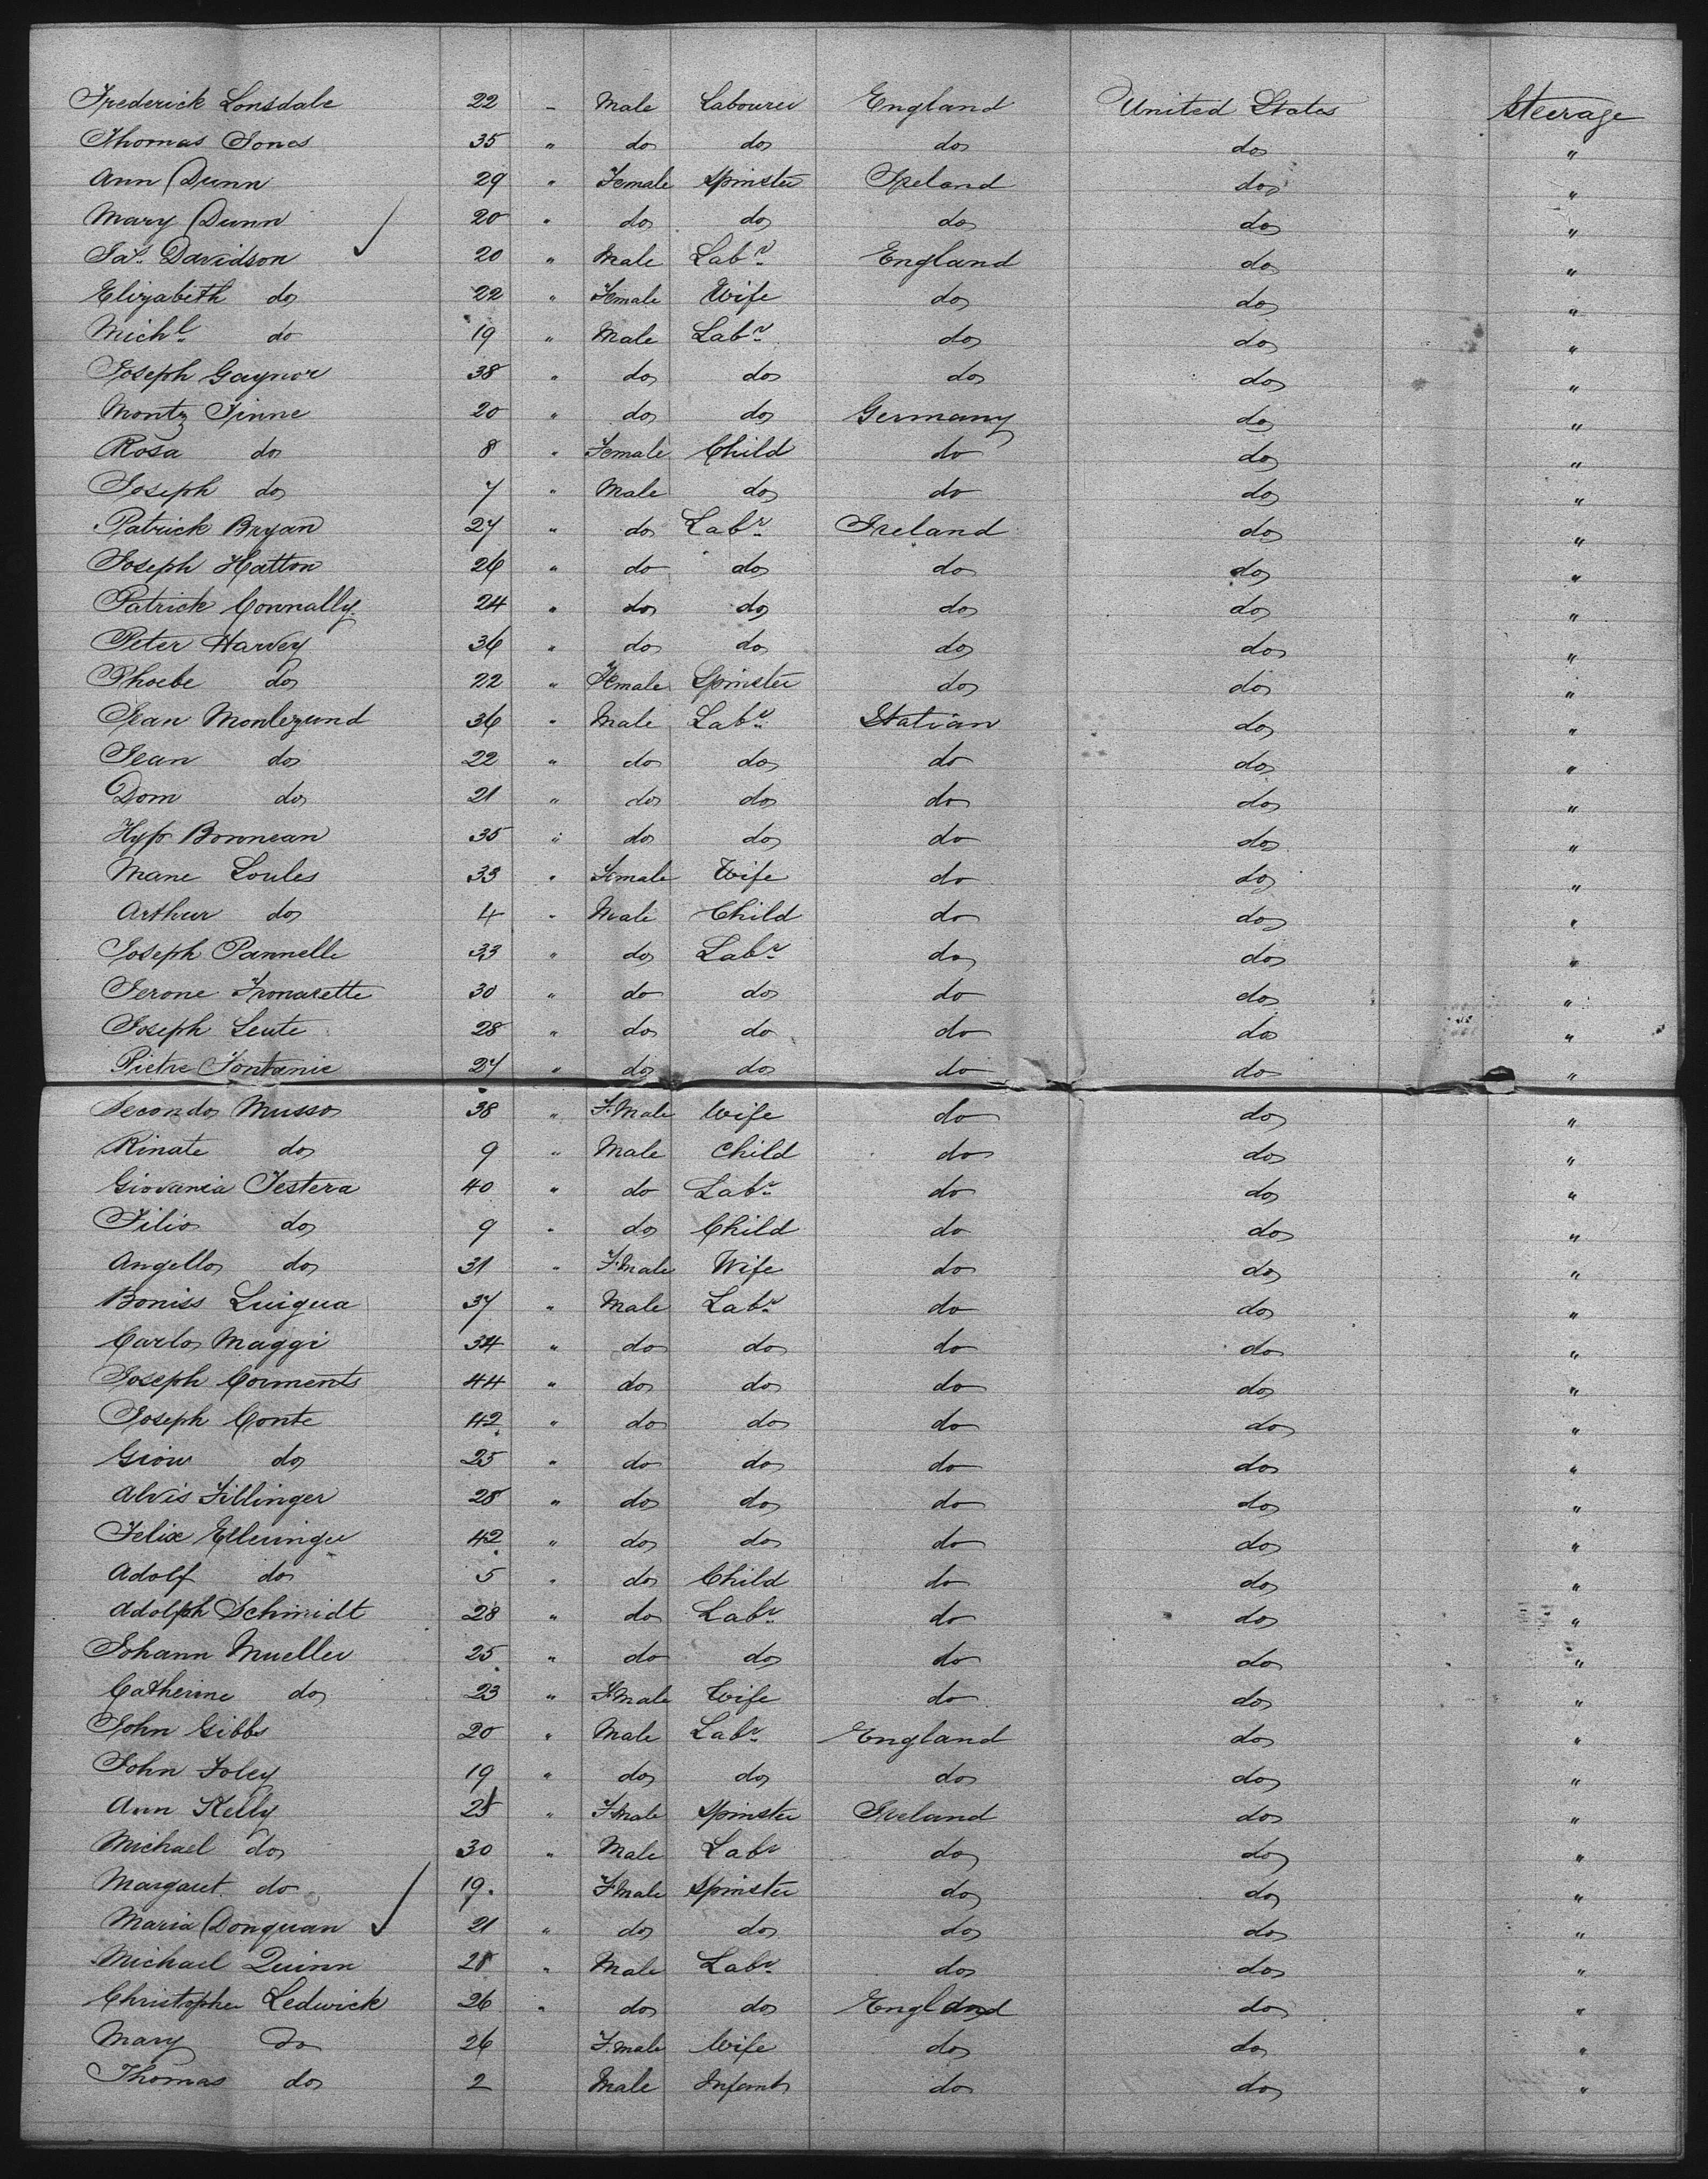 Frederick Lonsdale 22 " Male Labourer England United States Steerage
Thomas Jones 35 " do do do do "
Ann Dunn 29 " Female Spinster Ireland do "
Mary Dunn 20 " do do do do "
Jas. Davidson 20 " Male Labr England do "
Elizabeth do 22 " Female Wife do do "
Michl do 19 " Male Labr do do "
Joseph Gaynor 38 " do do do do "
Montz Finne 20 " do do Germany do "
Rosa do 8 " Female Child do do "
Joseph do 7 " Male do do do "
Patrick Bryan 27 " do Labr Ireland do "
Joseph Hatton 26 " do do do do "
Patrick Connally 24 " do do do do "
Peter Harvey 36 " do do do do "
Phoebe do 22 " Female Spinster do do "
Jean Monlezund 36 " Male Labr Italian do "
Jean do 22 " do do do do "
Dom do 21 " do do do do "
Hyp Bonnean 35 " do do do do "
Marie Loules 33 " Female Wife do do "
Arthur do 4 " Male Child do do "
Joseph Pannelle 33 " do Labr do do "
Jerone 30 " do do do do "
Joseph Leute 28 " do do do do "
Pietre Fontanie 27 " do do do do "
Secondo Musso 38 " F.Male Wife do do "
Rinate do 9 " Male Child do do "
Giovania Testera 40 " do Labr do do "
Filio do 9 " do Child do do "
Angello do 31 " F.Male Wife do do "
Boniss Luigua 37 " Male Labr do do "
Carlo Maggi 34 " do do do do "
Joseph Corments 44 " do do do do "
Joseph Conte 42 " do do do do "
Giow do 25 " do do do do "
Alvis Fillinger 28 " do do do do "
Felix Elleringer 42 " do do do do "
Adolf do 5 " do Child do do "
Adolph Schmidt 28 " do Labr do do "
Johann Mueller 25 " do do do do "
Catherine do 23 " F.Male Wife do do "
John Gibbs 20 " Male Labr England do "
John Foley 19 " do do do do "
Ann Kelly 25 " F.Male Spinster Ireland do "
Michael do 30 " Male Labr do do "
Margaret do 19. F.Male Spinster do do "
Maria Donquan 21 " do do do do "
Michael Quinn 28 " Male Labr do do "
Christopher Ledwick 26 " do do England do "
Mary do 26 F.male Wife do do "
Thomas do 2 Male Infant do do "